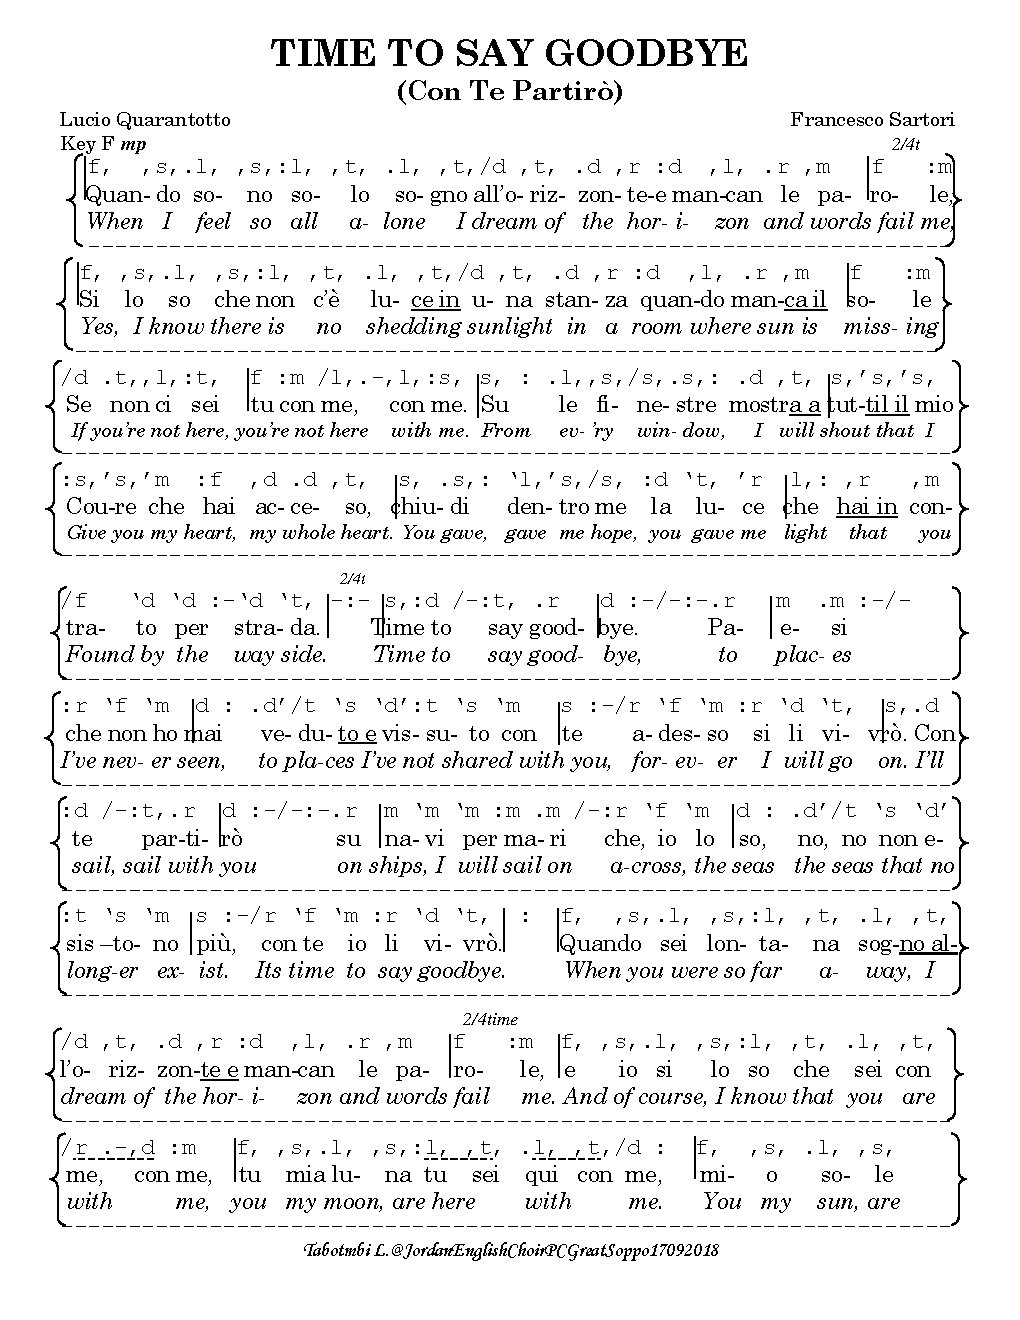 TIME TO SAY GOODBYE
(Con Te Partirò)
Lucio Quarantotto Francesco Sartori
Key F mp 2/4t
f, ,s,.l, ,s,:l, ,t, .l, ,t,/d ,t, .d ,r :d ,l, .r ,m |f :m
Quan- do so- no so- lo so- gno all'o- riz- zon- te-e man-can le pa- ro- le,
When I feel so all a- lone I dream of the hor- i- zon and words fail me,
|f, ,s,.l, ,s,:l, ,t, .l, ,t,/d ,t, .d ,r :d ,l, .r ,m |f :m
Si lo so che non c'è lu- ce in u- na stan- za quan-do man-ca il so- le
Yes, I know there is no shedding sunlight in a room where sun is miss- ing
/d .t,,l,:t, |f :m /l,.-,l,:s, |s, : .l,,s,/s,.s,: .d ,t, |s,'s,'s,
Se non ci sei tu con me, con me. Su le fi- ne- stre mostra a tut-til il mio
If you're not here, you're not here with me. From ev- 'ry win- dow, I will shout that I
:s,'s,'m :f ,d .d ,t, |s, .s,: ‘l,'s,/s, :d ‘t, 'r |l,: ,r ,m
Cou-re che hai ac- ce- so, chiu- di den- tro me la lu- ce che hai in con-
Give you my heart, my whole heart. You gave, gave me hope, you gave me light that you
2/4t
/f ‘d ‘d :-‘d ‘t, |-:- |s,:d /-:t, .r |d :-/-:-.r |m .m :-/-
tra- to per stra- da. Time to say good- bye. Pa- e- si
Found by the way side. Time to say good- bye, to plac- es
:r ‘f ‘m |d : .d'/t ‘s ‘d':t ‘s ‘m |s :-/r ‘f ‘m :r ‘d ‘t, |s,.d
che non ho mai ve- du- to e vis- su- to con te a- des- so si li vi- vrò. Con
I've nev- er seen, to pla-ces I've not shared with you, for- ev- er I will go on. I'll
:d /-:t,.r |d :-/-:-.r |m ‘m ‘m :m .m /-:r ‘f ‘m |d : .d'/t ‘s ‘d'
te par-ti- rò su na- vi per ma- ri che, io lo so, no, no non e-
sail, sail with you on ships, I will sail on a-cross, the seas the seas that no
:t ‘s ‘m |s :-/r ‘f ‘m :r ‘d ‘t, | : |f, ,s,.l, ,s,:l, ,t, .l, ,t,
sis –to- no più, con te io li vi- vrò. Quando sei lon- ta- na sog-no al-
long-er ex- ist. Its time to say goodbye. When you were so far a- way, I
2/4time
/d ,t, .d ,r :d ,l, .r ,m |f :m |f, ,s,.l, ,s,:l, ,t, .l, ,t,
l'o- riz- zon-te e man-can le pa- ro- le, e io si lo so che sei con
dream of the hor- i- zon and words fail me. And of course, I know that you are
/r .-,d :m |f, ,s,.l, ,s,:l, ,t, .l, ,t,/d : |f, ,s, .l, ,s,
me, con me, tu mia lu- na tu sei qui con me, mi- o so- le
with me, you my moon, are here with me. You my sun, are
Tabotmbi L.@JordanEnglishChoirPCGreatSoppo17092018